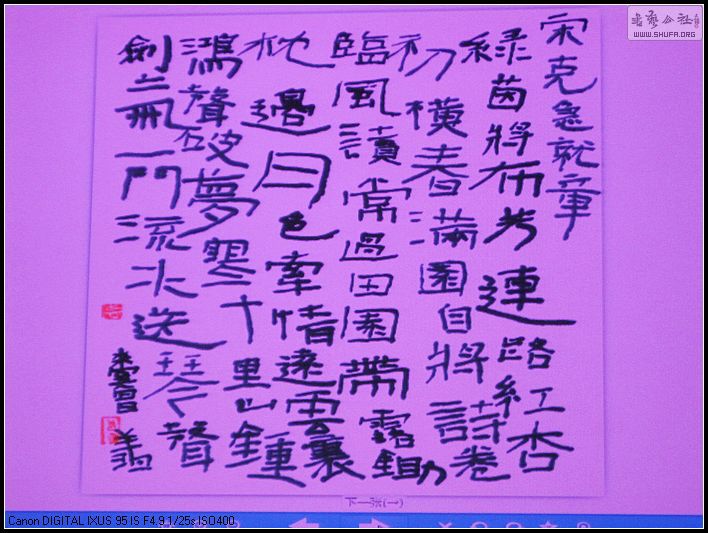 宋克急就章
綠茵將布芳連路紅杏
初橫春滿園自將詩卷
臨風讀常過田園帶露鋤
枕邊月色牽情遠雲裏
鴻聲破夢十里山鐘
劍一門流水送琴聲
书艺公社
WWW.SHUFA.ORG
下一张(→)
Canon DIGITAL IXUS 95 IS F4.9 1/25s ISO400